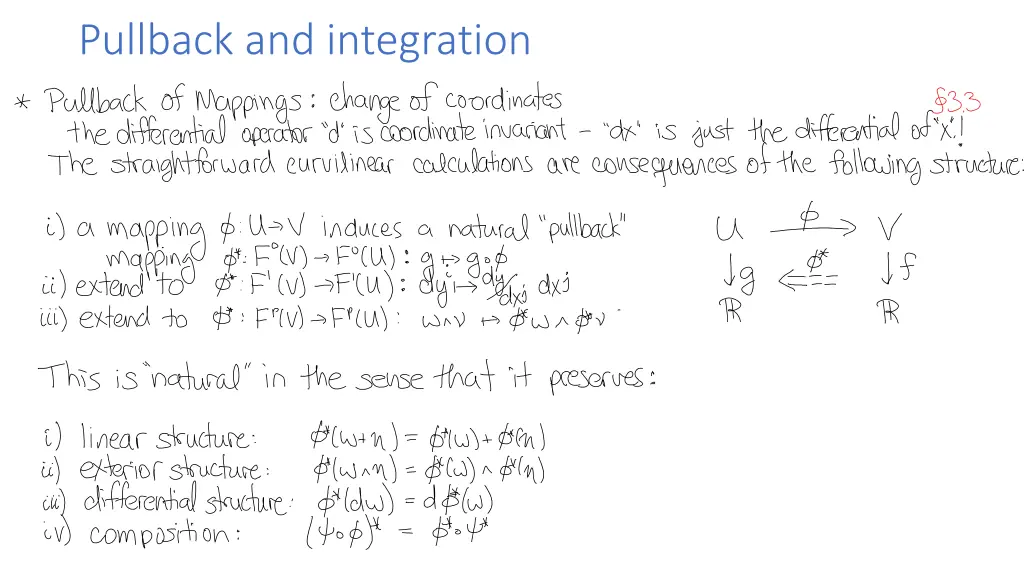 Pullback and integration
* Pullback of Mappings: change of coordinates
§3.3
the differential operator "d" is coordinate invariant – "dx" is just the differential of "x"!
The straightforward curvilinear calculations are consequences of the following structure:
i) a mapping ϕ: U→V induces a natural "pullback"
mapping ϕ*: F⁰(V) → F⁰(U): g ↦ g∘ϕ
ii) extend to ϕ*: F¹(V) → F¹(U): dyⁱ ↦ dyⁱ/dxʲ dxʲ
iii) extend to ϕ*: Fᵖ(V) → Fᵖ(U): ω∧ν ↦ ϕ*ω ∧ ϕ*ν
U ϕ→ V
↓g ϕ* ⇐== ↓f
ℝ ℝ
This is "natural" in the sense that it preserves:
i) linear structure: ϕ*(ω+η) = ϕ*(ω) + ϕ*(η)
ii) exterior structure: ϕ*(ω∧η) = ϕ*(ω) ∧ ϕ*(η)
iii) differential structure: ϕ*(dω) = dϕ*(ω)
iv) composition: (ψ∘ϕ)* = ϕ*∘ψ*